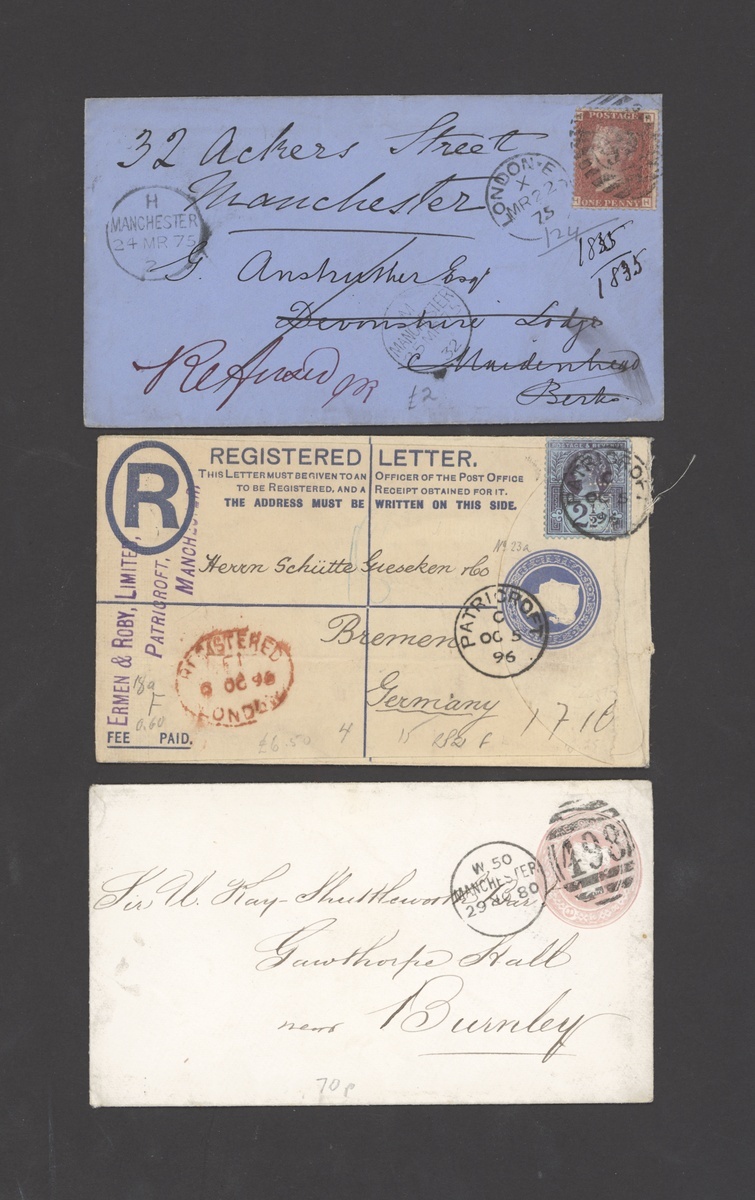 32 Ackers Street
Manchester
POSTAGE
ONE PENNY
LONDON·E
X
MR 22
75
124
H
MANCHESTER
24 MR 75
2
G. Anstruther Esqr
1835
1835
Devonshire Lodge
Maidenhead
Berks
MANCHESTER
32
Refused
£2
R
REGISTERED LETTER.
THIS LETTER MUST BE GIVEN TO AN OFFICER OF THE POST OFFICE
TO BE REGISTERED, AND A RECEIPT OBTAINED FOR IT.
THE ADDRESS MUST BE WRITTEN ON THIS SIDE.
POSTAGE & REVENUE
PATRICROFT
OC 5
ERMEN & ROBY, LIMITED,
PATRICROFT,
MANCHESTER
No 23a
Herrn Schütte Gieseken & Co
REGISTRATION
PATRICROFT
C
OC 5
96
Bremen
Germany
REGISTERED
6 OC 96
LONDON
18a
F
0.60
FEE PAID.
£6.50
4
15
1710
W. 50
MANCHESTER
80
498
Sir U. Kay-Shuttleworth, Bar
Gawthorpe Hall
near Burnley
70p